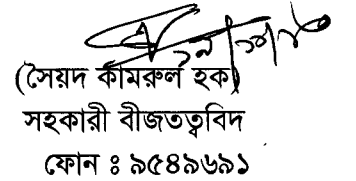 (সৈয়দ কামরুল হক)
সহকারী বীজতত্ববিদ
ফোন ঃ ৯৫৪৯৬৯১